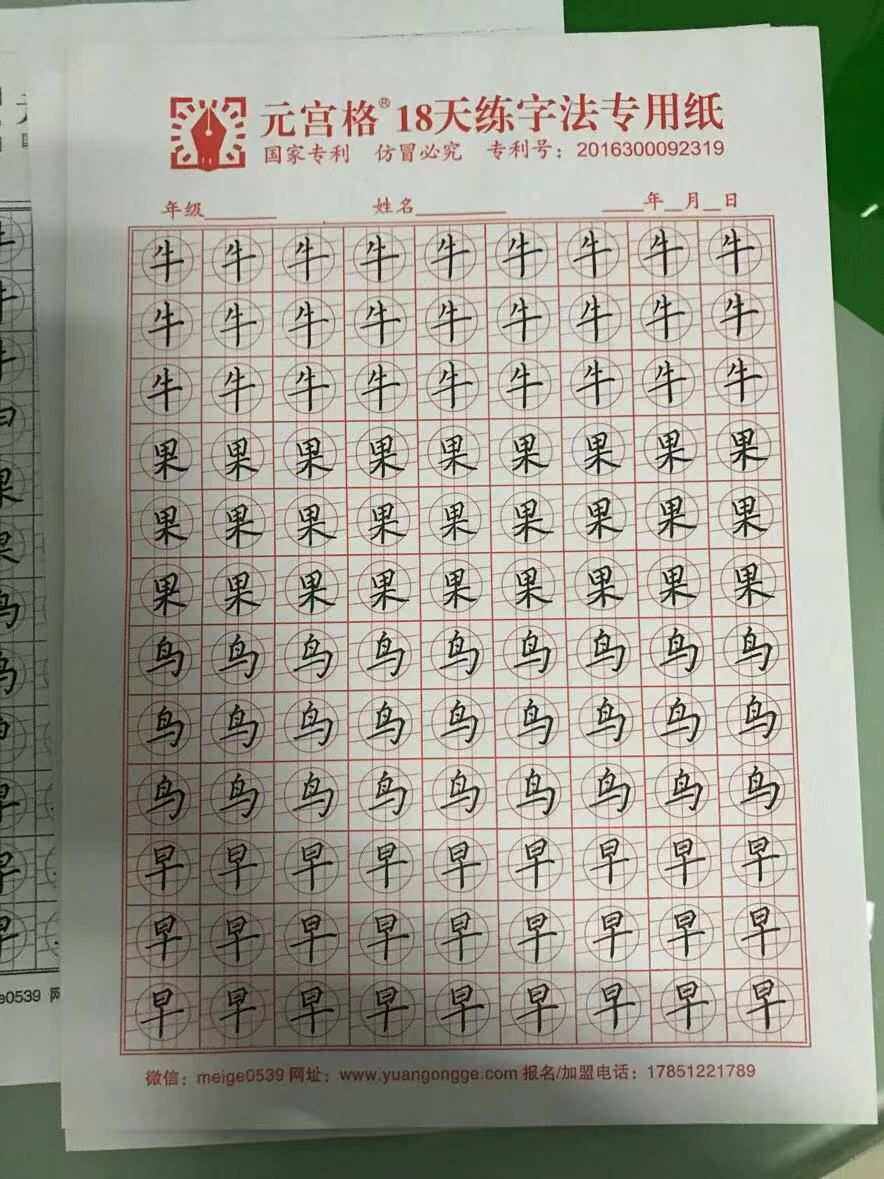 元宫格® 18天练字法专用纸
国家专利 仿冒必究 专利号：2016300092319
年级______ 姓名________ ____年__月__日
牛 牛 牛 牛 牛 牛 牛 牛 牛
牛 牛 牛 牛 牛 牛 牛 牛 牛
牛 牛 牛 牛 牛 牛 牛 牛 牛
果 果 果 果 果 果 果 果 果
果 果 果 果 果 果 果 果 果
果 果 果 果 果 果 果 果 果
鸟 鸟 鸟 鸟 鸟 鸟 鸟 鸟 鸟
鸟 鸟 鸟 鸟 鸟 鸟 鸟 鸟 鸟
鸟 鸟 鸟 鸟 鸟 鸟 鸟 鸟 鸟
早 早 早 早 早 早 早 早 早
早 早 早 早 早 早 早 早 早
早 早 早 早 早 早 早 早 早
微信：meige0539 网址：www.yuangongge.com 报名/加盟电话：17851221789